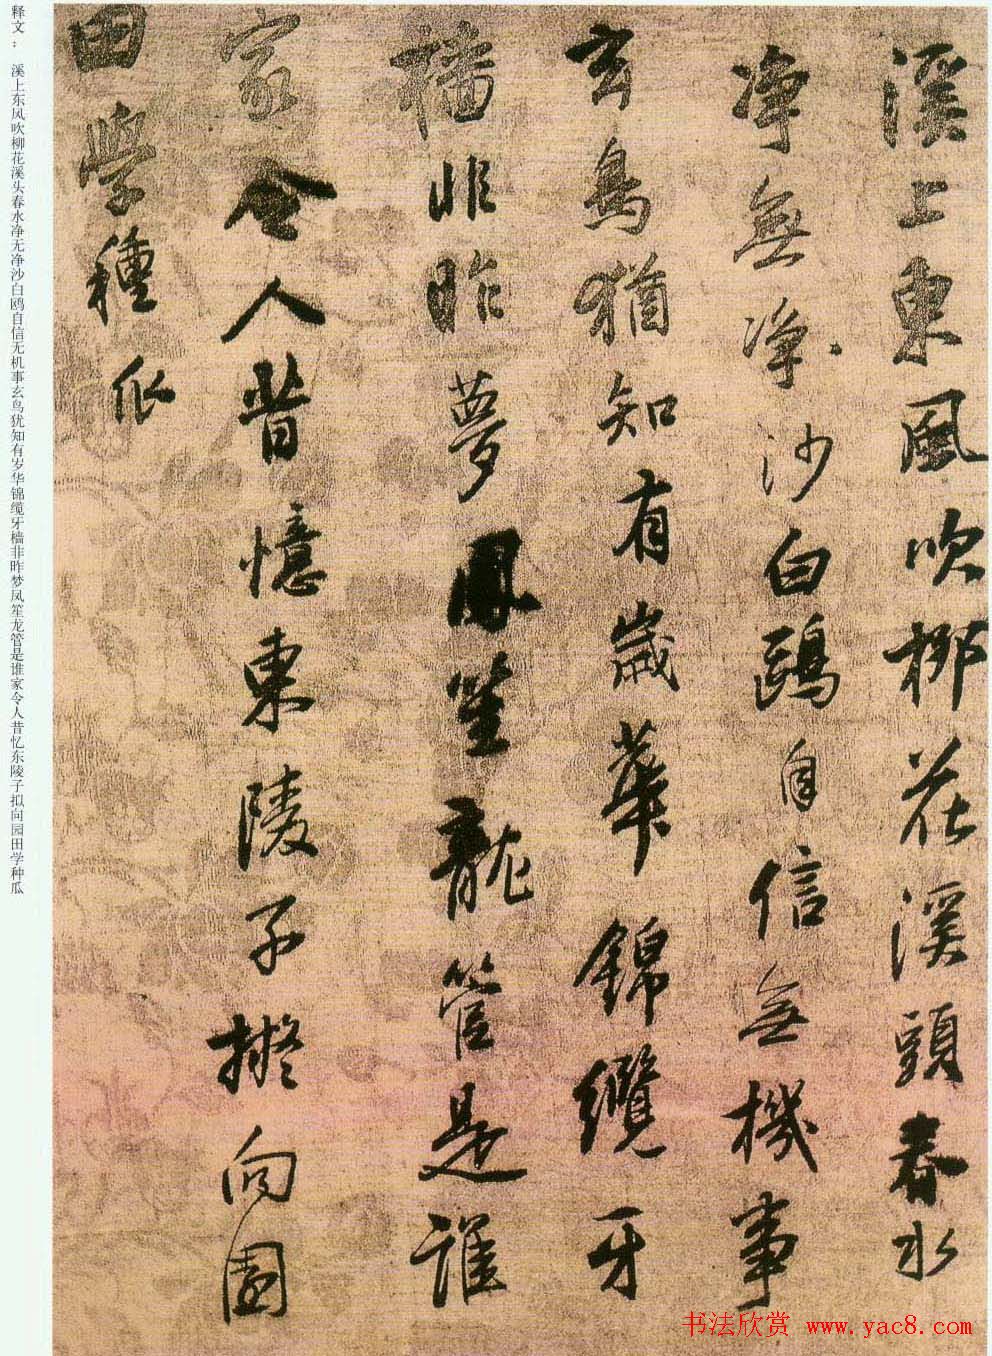 溪上東風吹柳花溪頭春水
淨無淨沙白鷗自信無機事
玄鳥猶知有歲華錦纜牙
檣非昨夢鳳笙龍管是誰
家令人昔憶東陵子擬向園
田學種瓜
释文：溪上东风吹柳花溪头春水净无净沙白鸥自信无机事玄鸟犹知有岁华锦缆牙樯非昨梦凤笙龙管是谁家令人昔忆东陵子拟向园田学种瓜
书法欣赏 www.yac8.com